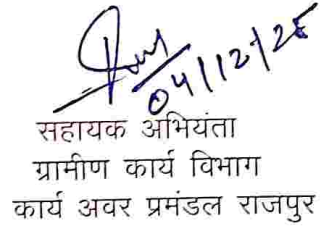 04/12/25
सहायक अभियंता
ग्रामीण कार्य विभाग
कार्य अवर प्रमंडल राजपुर